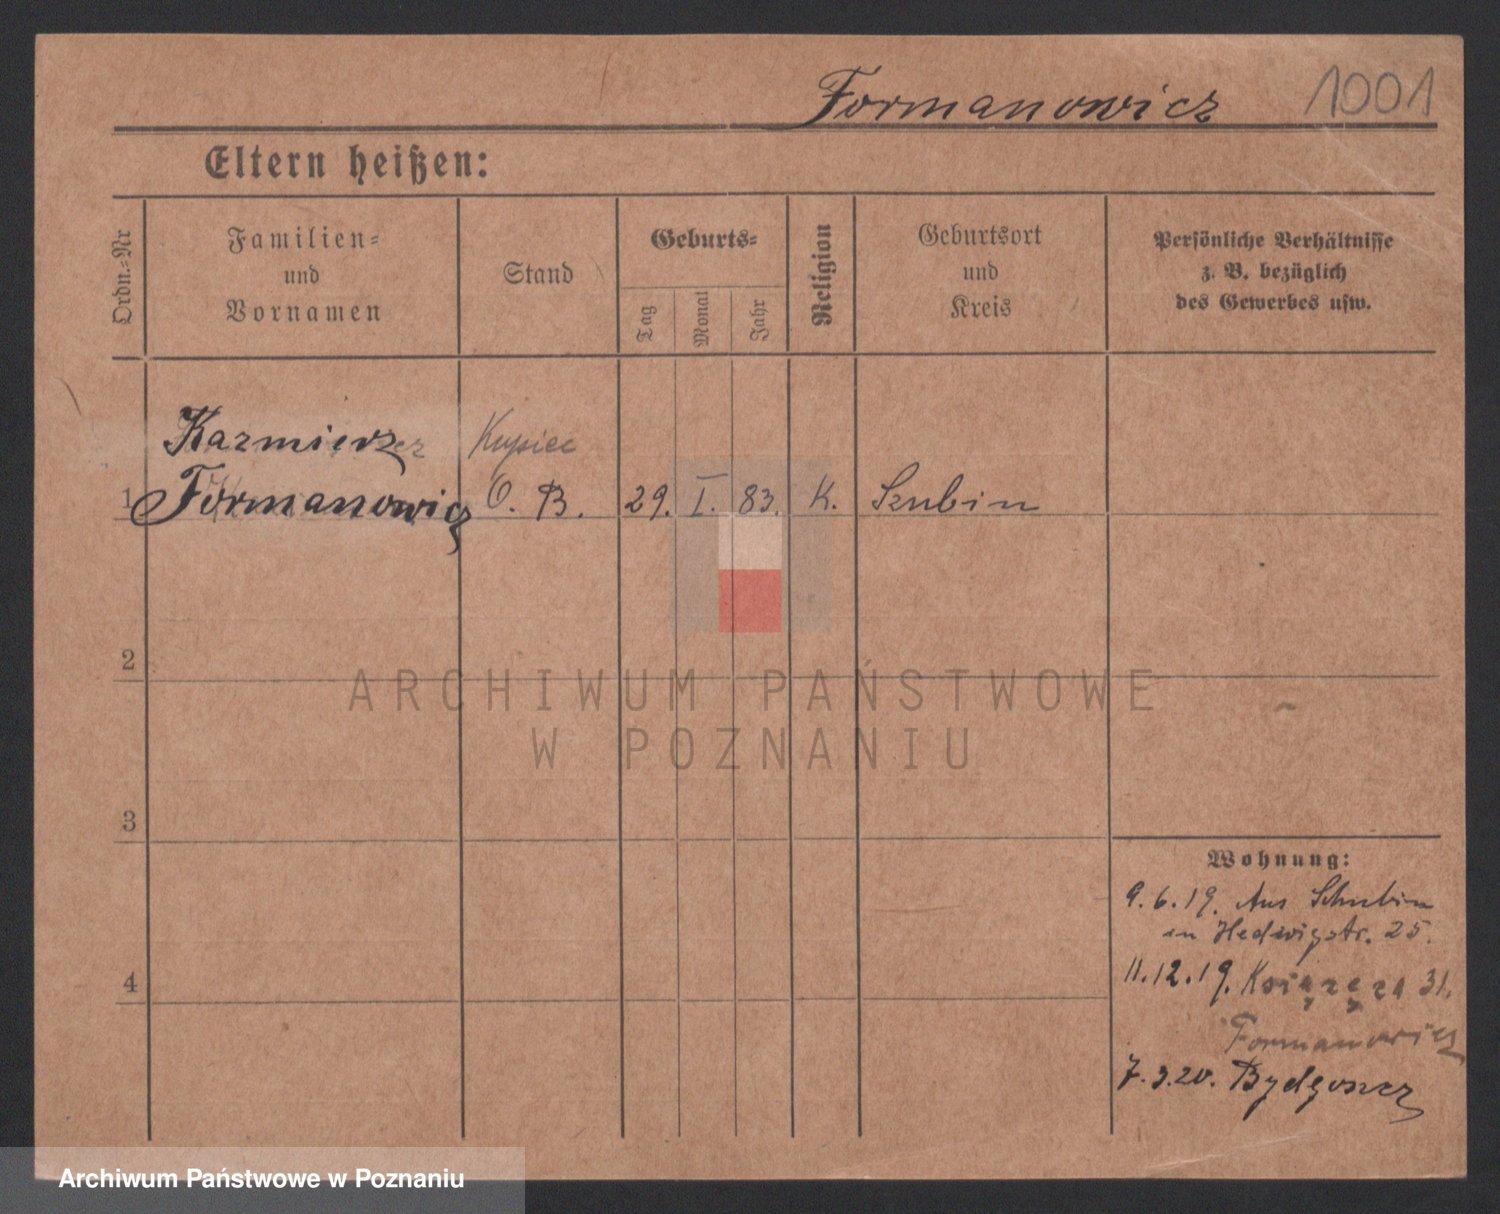 Formanowicz 1001
Eltern heißen:
Ordn.-Nr
Familien-
und
Vornamen
Stand
Geburts-
Tag
Monat
Jahr
Religion
Geburtsort
und
Kreis
Persönliche Verhältnisse
z. B. bezüglich
des Gewerbes usw.
Kazmierz Kupiec
1 Formanowicz O. B. 29. I. 83. K. Szubin
2
ARCHIWUM PAŃSTWOWE
W POZNANIU
3
Wohnung:
9.6.19. Aus Schubin
in Hedwigstr. 25.
4
11.12.19. Książęca 31.
Formanowicz
7.3.20. Bydgoszcz
Archiwum Państwowe w Poznaniu